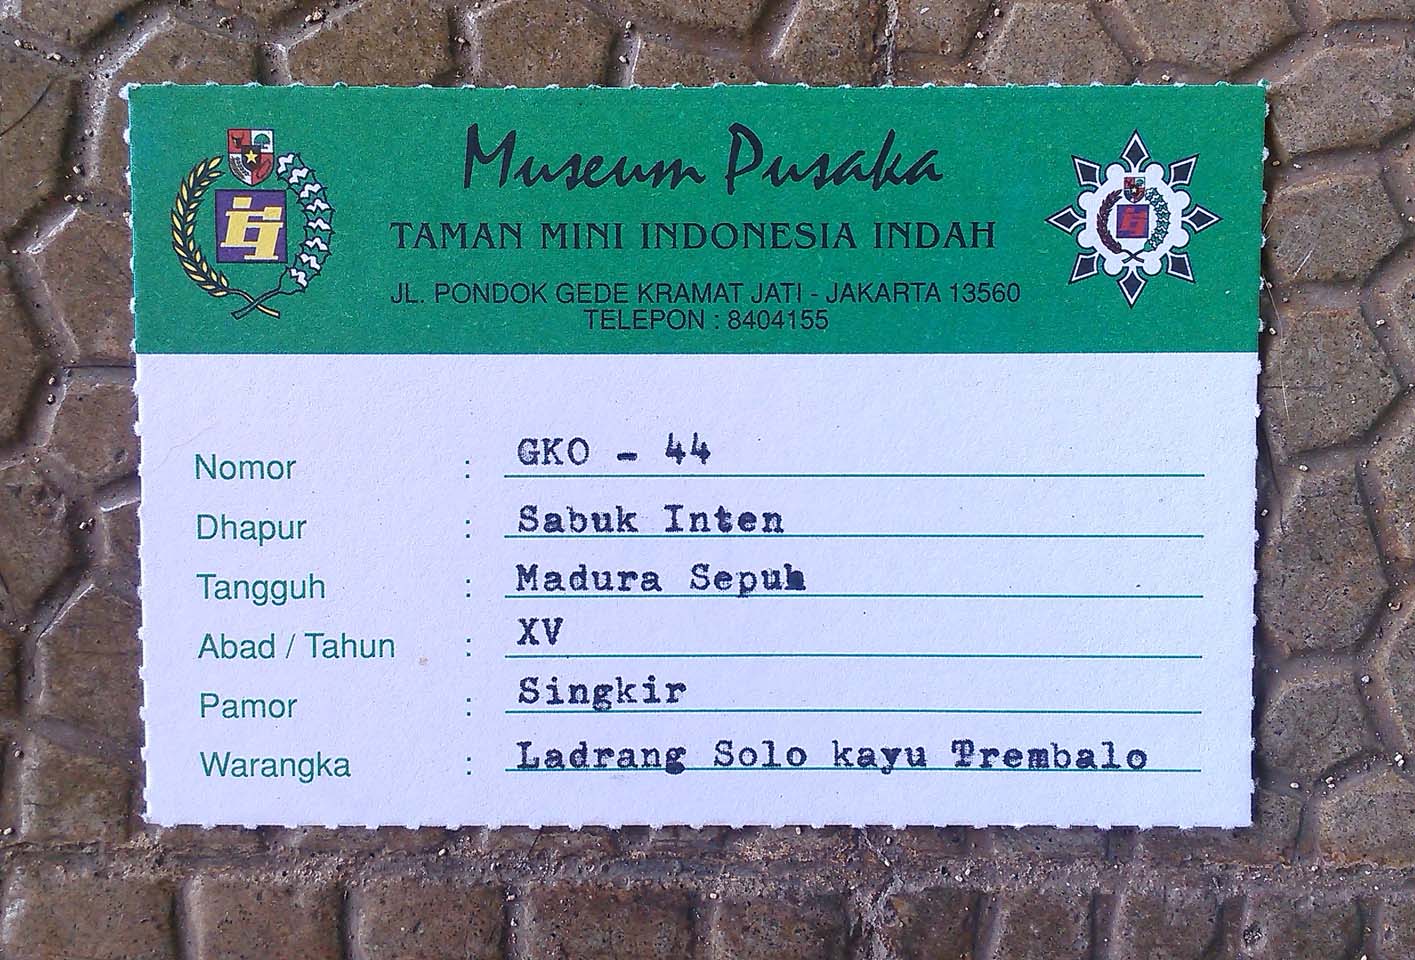 Museum Pusaka
TAMAN MINI INDONESIA INDAH
JL. PONDOK GEDE KRAMAT JATI - JAKARTA 13560
TELEPON : 8404155
Nomor : GKO - 44
Dhapur : Sabuk Inten
Tangguh : Madura Sepuh
Abad / Tahun : XV
Pamor : Singkir
Warangka : Ladrang Solo kayu Trembalo